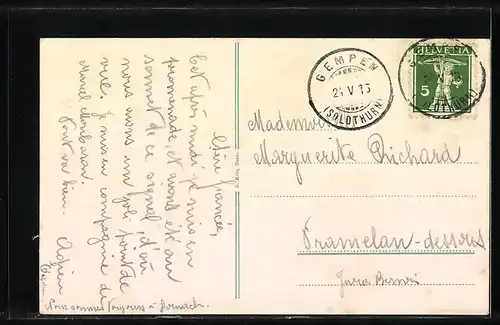 Chère fiancée,
Cet après midi je suis en
promenade, et avons été au
sommet de ce signal, d'où
nous avons un joli point de
vue. Je suis en compagnie de
Marcel
Tout va bien.
Adrien
Nous sommes toujours à Dornach.
GEMPEN
24 V 15
(SOLOTHURN)
HELVETIA
5
(SOLOTHURN)
Mademoi
Marguerite Richard
Tramelan-dessous
Jura Bernois